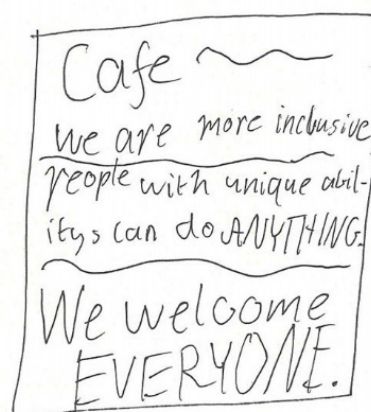 Cafe
we are more inclusive
people with unique abil-
itys can do ANYTHING.
We welcome
EVERYONE.